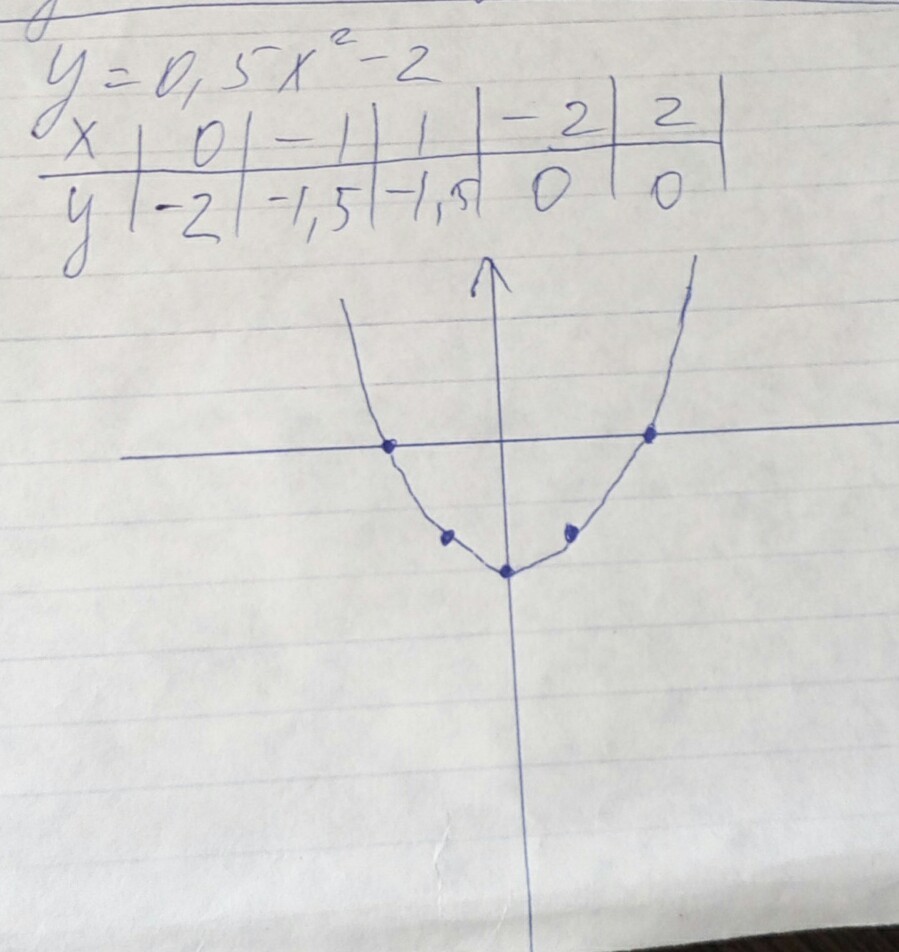 y = 0,5x² - 2
x | 0 | -1 | 1 | -2 | 2 |
y | -2 | -1,5 | -1,5 | 0 | 0